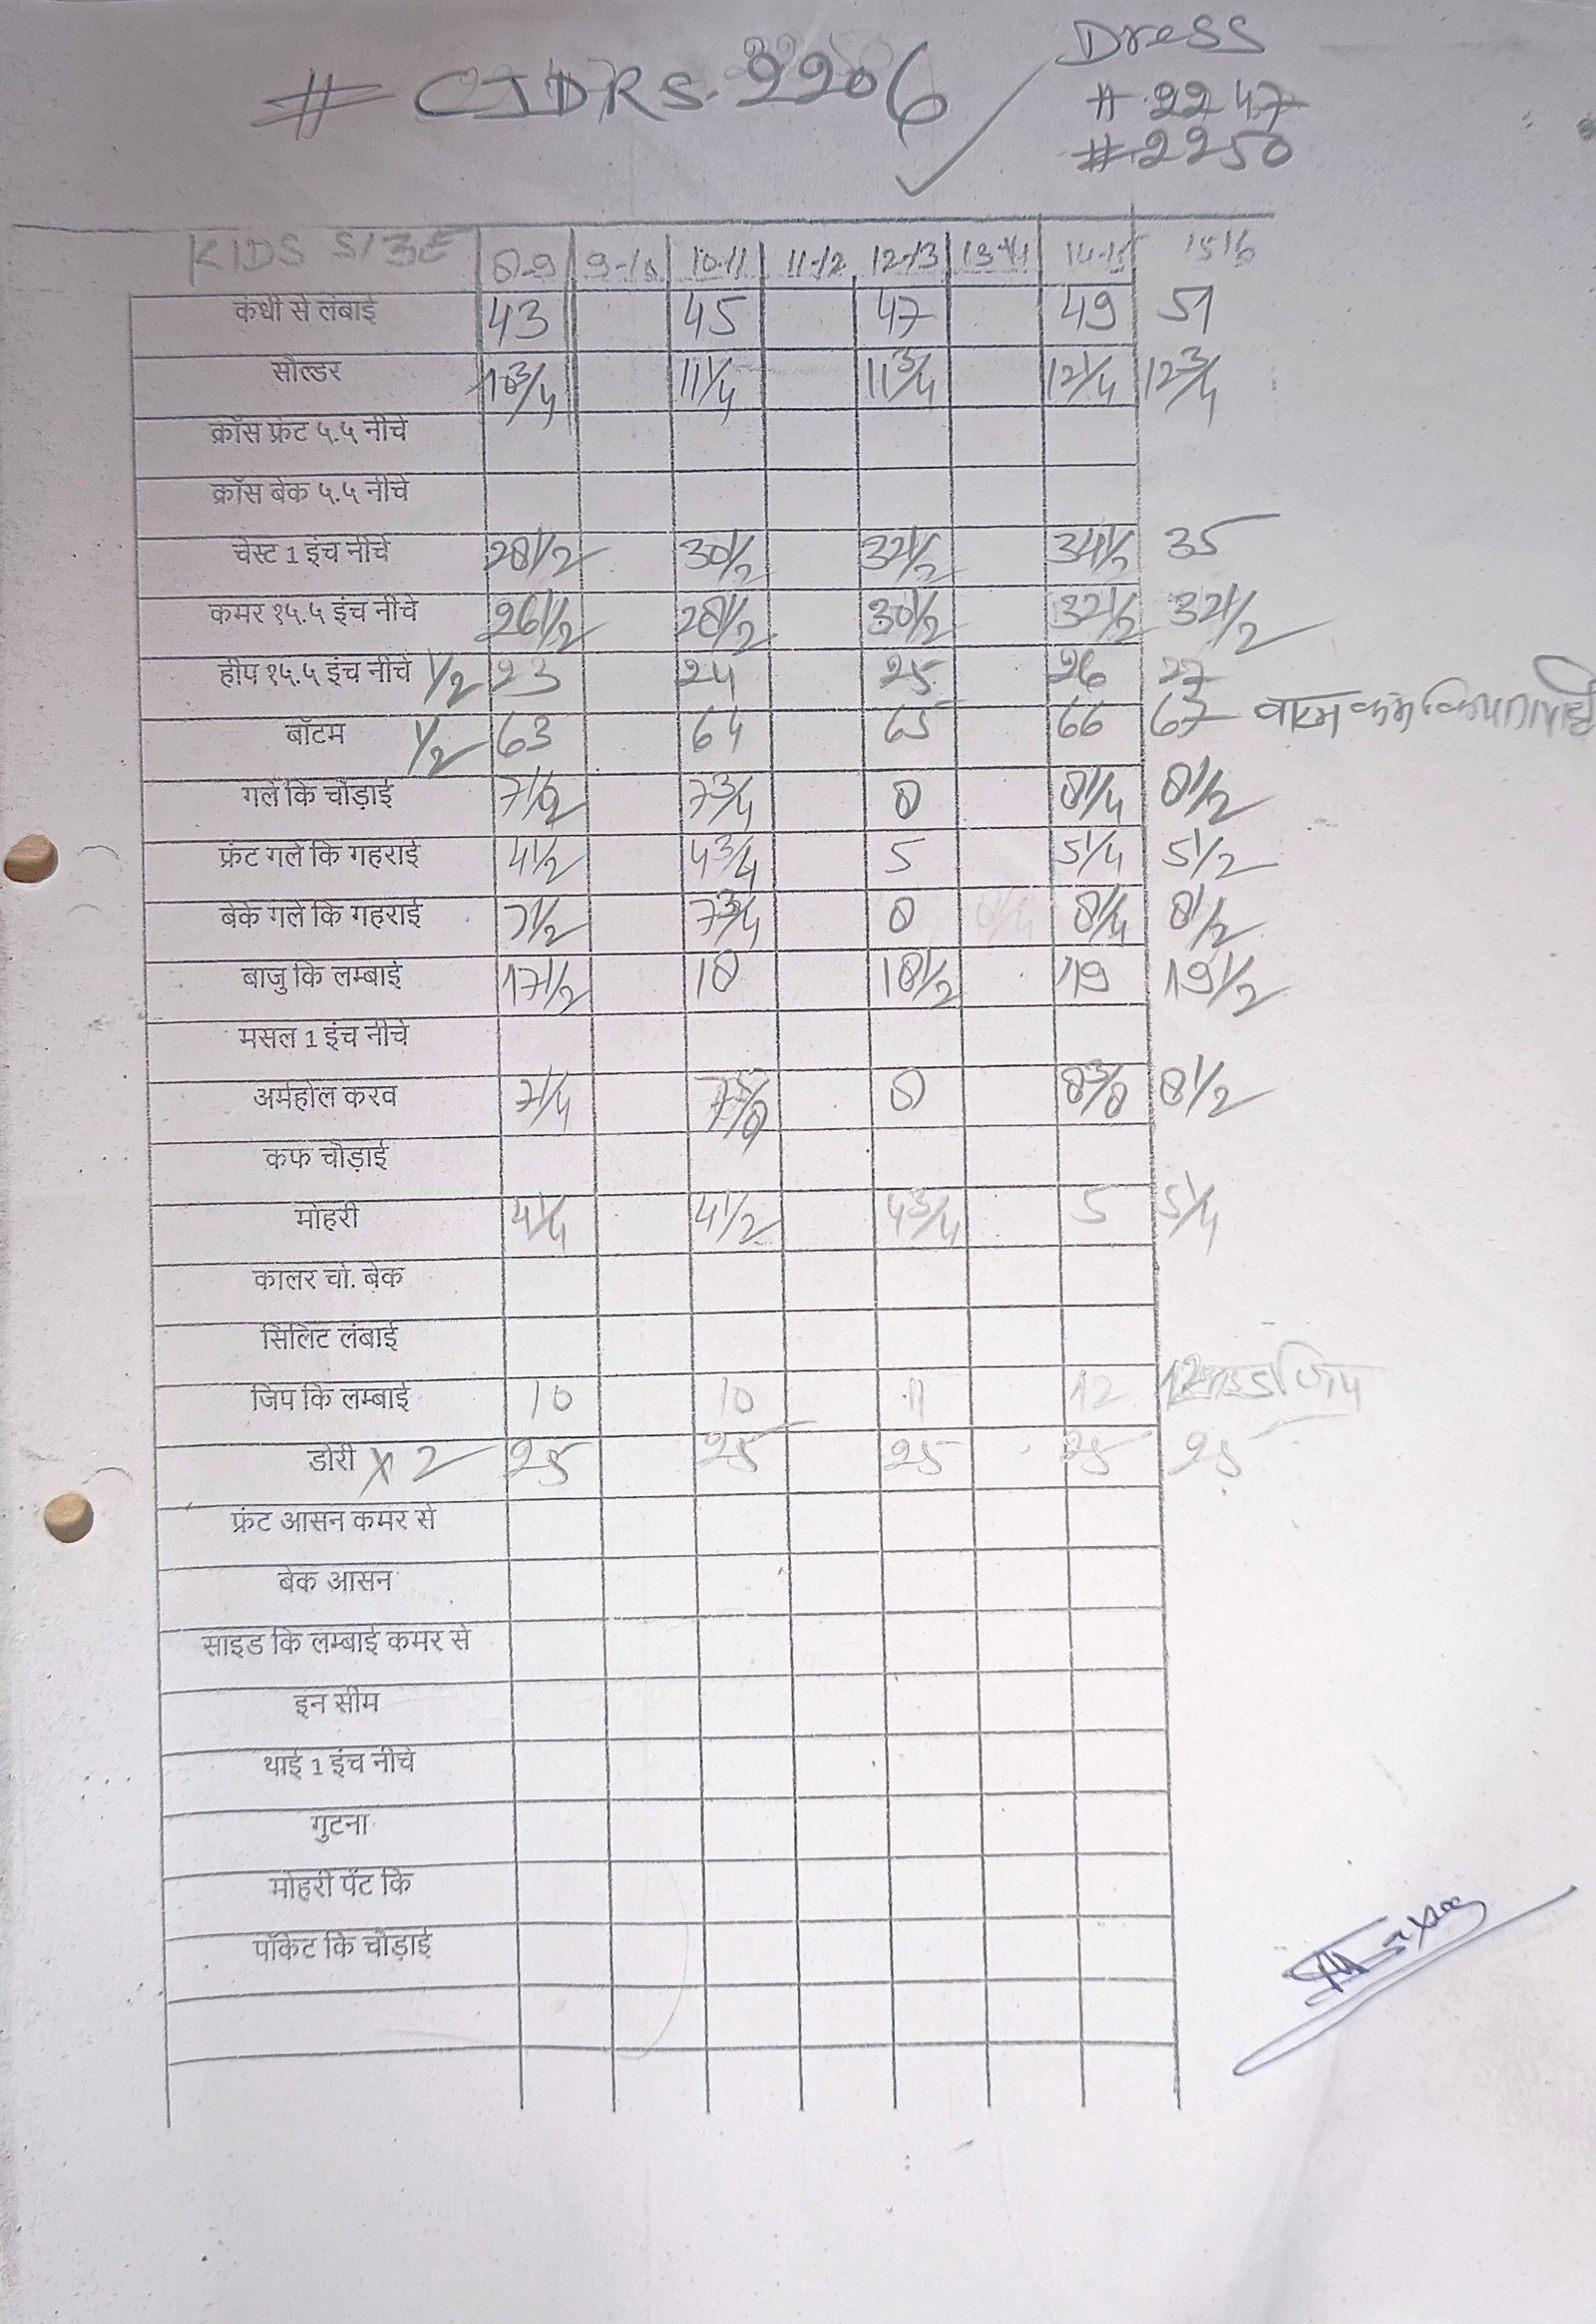 # CJDRS-2206
Dress
# 2247
# 2250
KIDS SIZE 8-9 9-10 10-11 11-12 12-13 13-14 14-15 15-16
कंधी से लंबाई 43 45 47 49 51
सोल्डर 10 3/4 11 1/4 11 3/4 12 1/4 12 3/4
क्रॉस फ्रंट ५.५ नीचे
क्रॉस बेक ५.५ नीचे
चेस्ट 1 इंच नीचे 28 1/2 30 1/2 32 1/2 34 1/2 35
कमर १५.५ इंच नीचे 26 1/2 28 1/2 30 1/2 32 1/2 32 1/2
हीप १५.५ इंच नीचे 1/2 23 24 25 26 27
बॉटम 1/2 63 64 65 66 67
गले कि चौड़ाई 7 1/2 7 3/4 8 8 1/4 8 1/2
फ्रंट गले कि गहराई 4 1/2 4 3/4 5 5 1/4 5 1/2
बेक गले कि गहराई 7 1/2 7 3/4 8 8 1/4 8 1/4 8 1/2
बाजु कि लम्बाई 17 1/2 18 18 1/2 19 19 1/2
मसल 1 इंच नीचे
अर्महोल करव 7 1/4 7 5/8 8 8 3/8 8 1/2
कफ चौड़ाई
मोहरी 4 1/4 4 1/2 4 3/4 5 5 1/4
कालर चो. बेक
सिलिट लंबाई
जिप कि लम्बाई 10 10 11 12 12
डोरी x 2 25 25 25 25 25
फ्रंट आसन कमर से
बेक आसन
साइड कि लम्बाई कमर से
इन सीम
थाई 1 इंच नीचे
गुटना
मोहरी पेंट कि
पॉकेट कि चौड़ाई